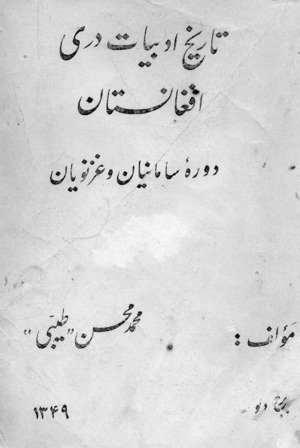 تاریخ ادبیات دری
افغانستان
دورهٔ سامانیان و غزنویان
مؤلف: محمد محسن "طیبی"
برج دلو ۱۳۴۹